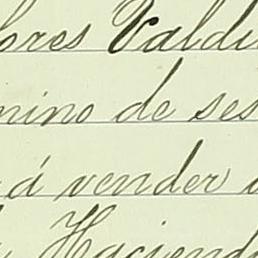 ores Valdi
mino de ses
á vender
Haciend